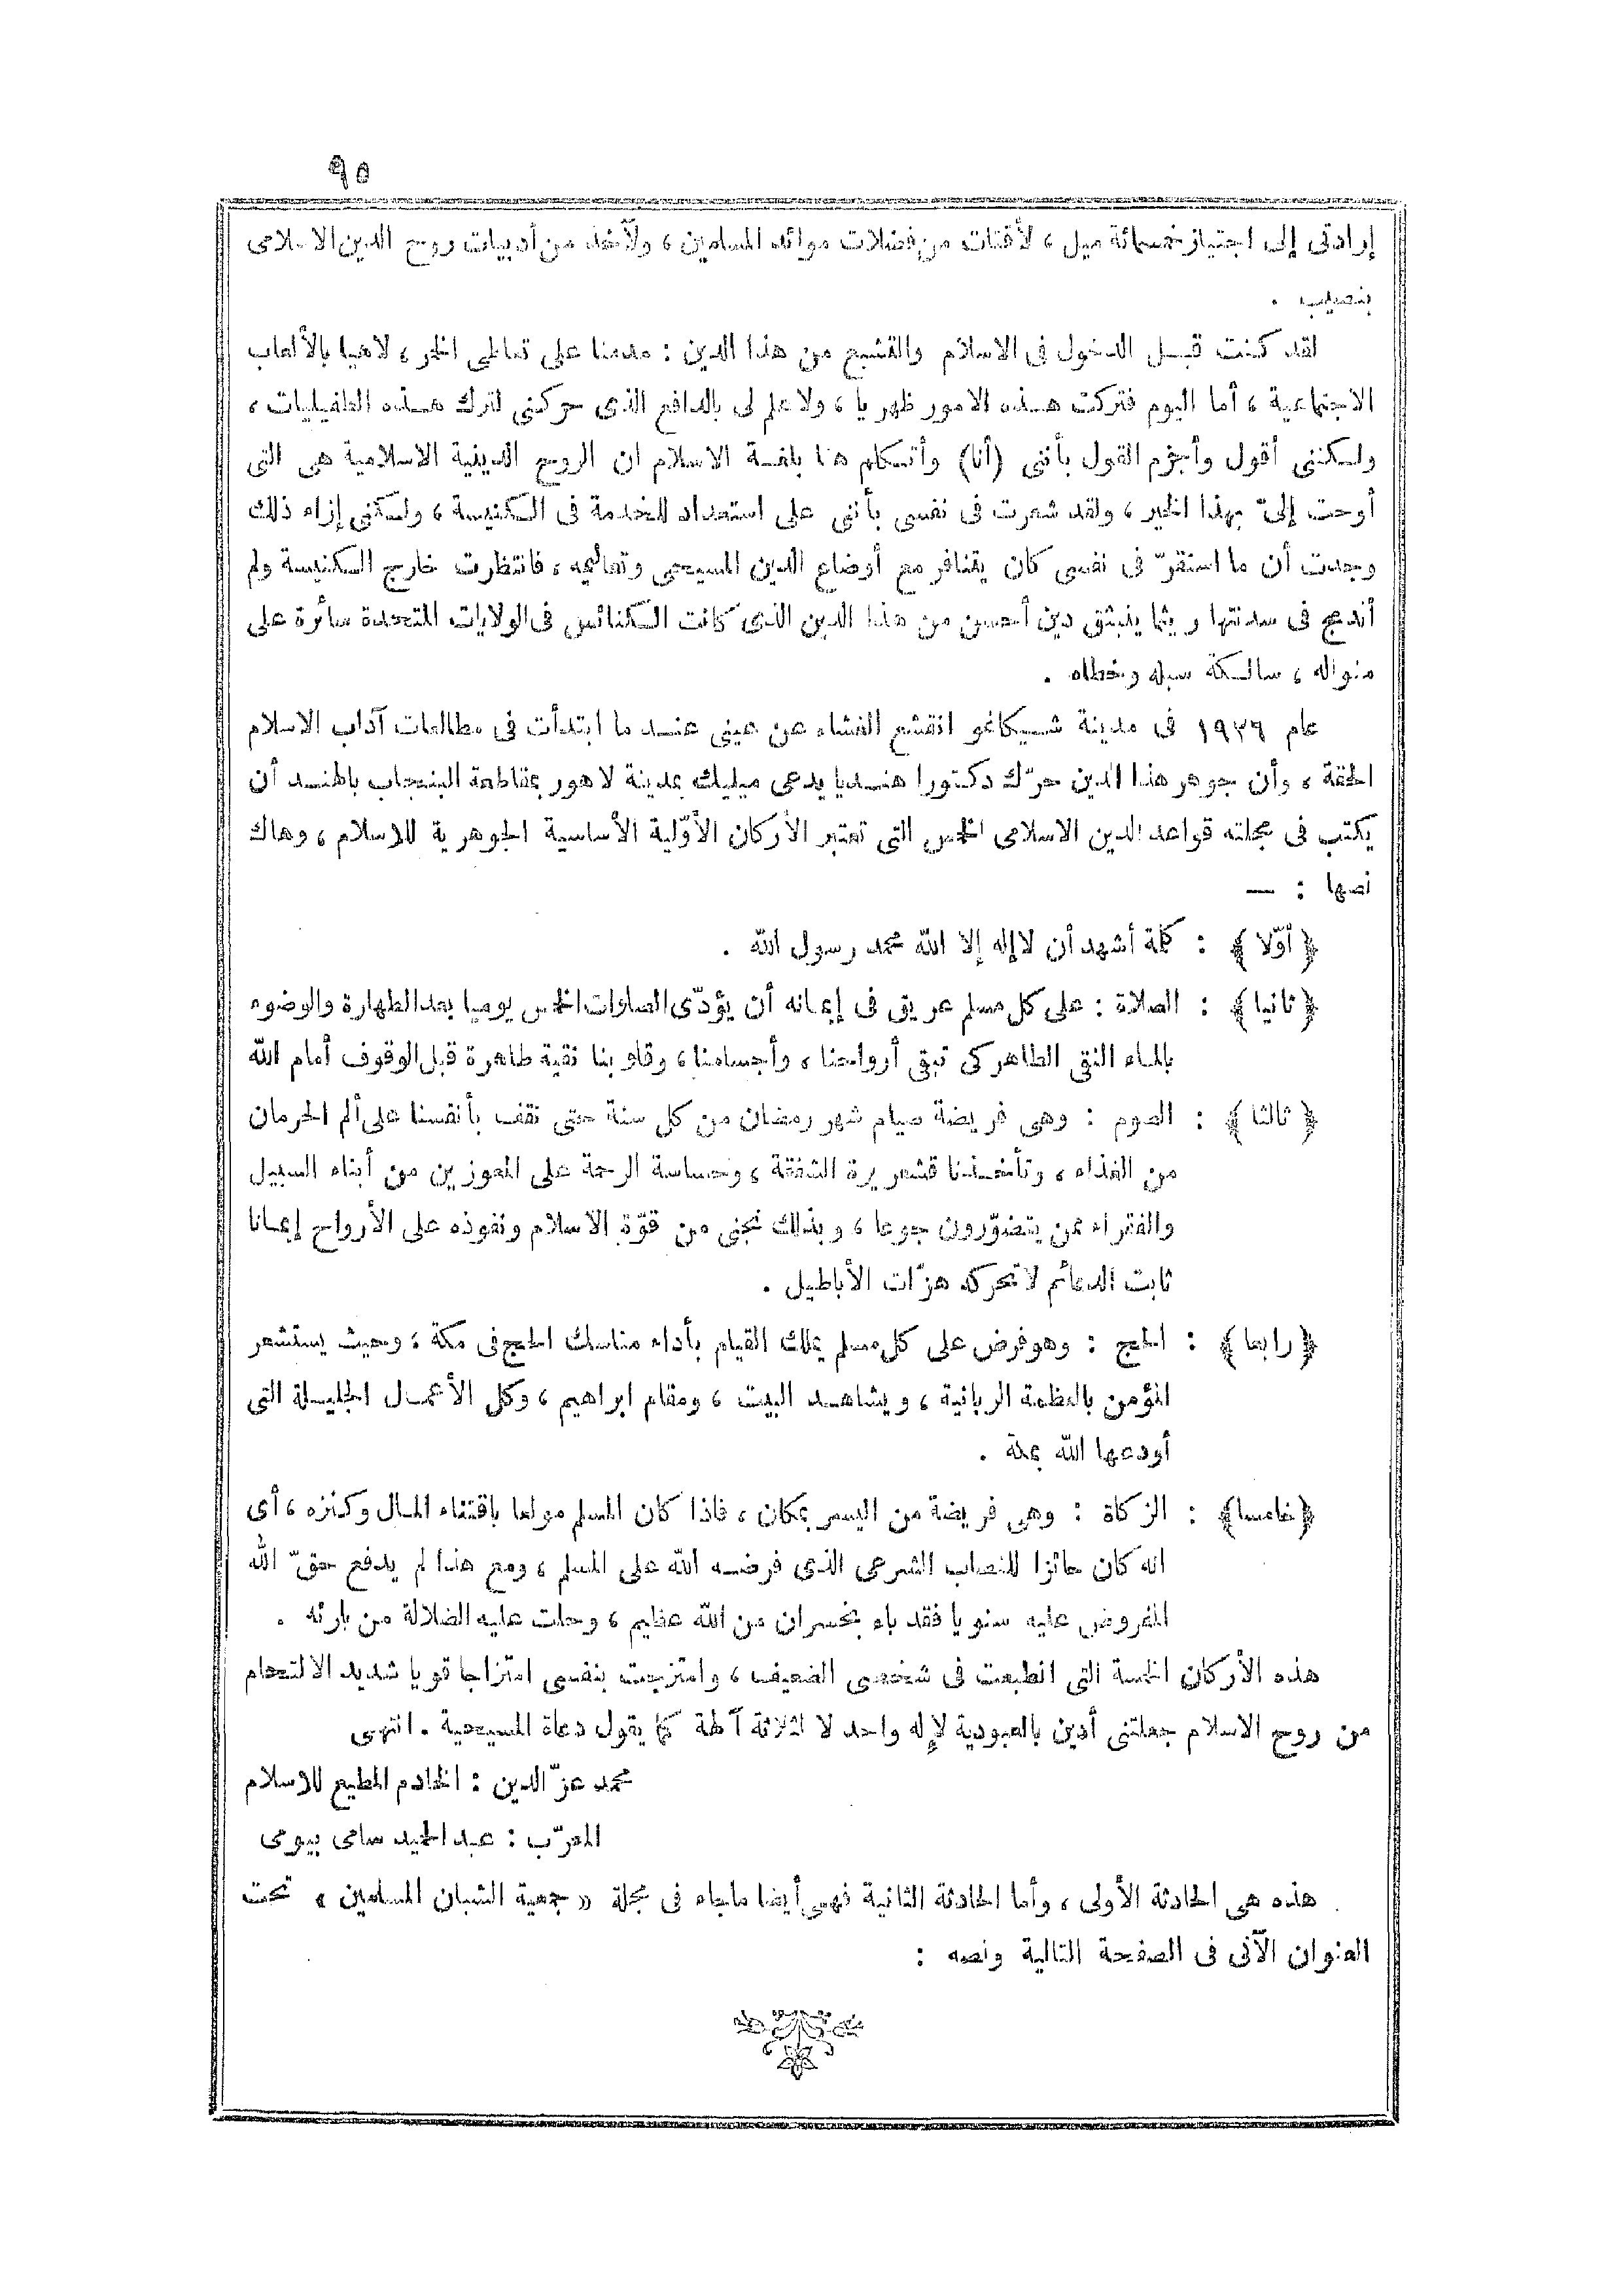 ٩٥
إرادتى إلى اجتياز خمسمائة ميل ، لأقتات من فضلات موائد المسلمين ، ولآخذ من أدبيات روح الدين الاسلامى
بنصيب .
لقد كنت قبل الدخول فى الاسلام والتشبع من هذا الدين : مدمنا على تعاطى الخمر ، لاهيا بالألعاب
الاجتماعية ، أما اليوم فتركت هذه الامور ظهريا ، ولا علم لى بالدافع الذى حركنى لترك هذه الطفيليات ،
ولكننى أقول وأجزم القول بأننى (أنا) وأتكلم هنا بلغة الاسلام ان الروح الدينية الاسلامية هى التى
أوحت إلىّ بهذا الخير ، ولقد شعرت فى نفسى بأننى على استعداد للخدمة فى الكنيسة ، ولكننى إزاء ذلك
وجدت أن ما استقرّ فى نفسى كان يتنافر مع أوضاع الدين المسيحى وتعاليمه ، فانتظرت خارج الكنيسة ولم
أندمج فى سدنتها ريثما ينبثق دين أحسن من هذا الدين الذى كانت الكنائس فى الولايات المتحدة سائرة على
منواله ، سالكة سبله وخطاه .
عام ١٩٢٦ فى مدينة شيكاغو انقشع الغشاء عن عينى عند ما ابتدأت فى مطالعات آداب الاسلام
الحقة ، وأن جوهر هذا الدين حرّك دكتورا هنديا يدعى ميليك بمدينة لاهور بمقاطعة البنجاب بالهند أن
يكتب فى مجلته قواعد الدين الاسلامى الخمس التى تعتبر الأركان الأوّلية الأساسية الجوهرية للاسلام ، وهاك
نصها : —
﴿ أوّلا ﴾ : كلمة أشهد أن لا إله إلا الله محمد رسول الله .
﴿ ثانيا ﴾ : الصلاة : على كل مسلم عريق فى إيمانه أن يؤدّى الصلوات الخمس يوميا بعد الطهارة والوضوء
بالماء النقى الطاهر كى تبقى أرواحنا ، وأجسامنا ، وقلوبنا نقية طاهرة قبل الوقوف أمام الله
﴿ ثالثا ﴾ : الصوم : وهى فريضة صيام شهر رمضان من كل سنة حتى نقف بأنفسنا على ألم الحرمان
من الغذاء ، وتأخذنا قشعريرة الشفقة ، وحساسة الرحمة على المعوزين من أبناء السبيل
والفقراء ممن يتضوّرون جوعا ، وبذلك نجنى من قوّة الاسلام ونفوذه على الأرواح إيمانا
ثابت الدعائم لا تحركه هزّات الأباطيل .
﴿ رابعا ﴾ : الحج : وهو فرض على كل مسلم يملك القيام بأداء مناسك الحج فى مكة ، وحيث يستشعر
المؤمن بالعظمة الربانية ، ويشاهد البيت ، ومقام ابراهيم ، وكل الأعمال الجليلة التى
أودعها الله بمكة .
﴿ خامسا ﴾ : الزكاة : وهى فريضة من اليسر بمكان ، فاذا كان المسلم مولعا باقتناء المال وكنزه ، أى
انه كان حائزا للنصاب الشرعى الذى فرضه الله على المسلم ، ومع هذا لم يدفع حقّ الله
المفروض عليه سنويا فقد باء بخسران من الله عظيم ، وحلت عليه الضلالة من بارئه .
هذه الأركان الخمسة التى انطبعت فى شخصى الضعيف ، وامتزجت بنفسى امتزاجا قويا شديد الالتحام
من روح الاسلام جعلتنى أدين بالعبودية لإله واحد لا لثلاثة آلهة كما يقول دعاة المسيحية . انتهى
محمد عزّ الدين : الخادم المطيع للاسلام
المعرّب : عبد الحميد سامى بيومى
هذه هى الحادثة الأولى ، وأما الحادثة الثانية فهى أيضا ماجاء فى مجلة « جمعية الشبان المسلمين » تحت
العنوان الآتى فى الصفحة التالية ونصه :